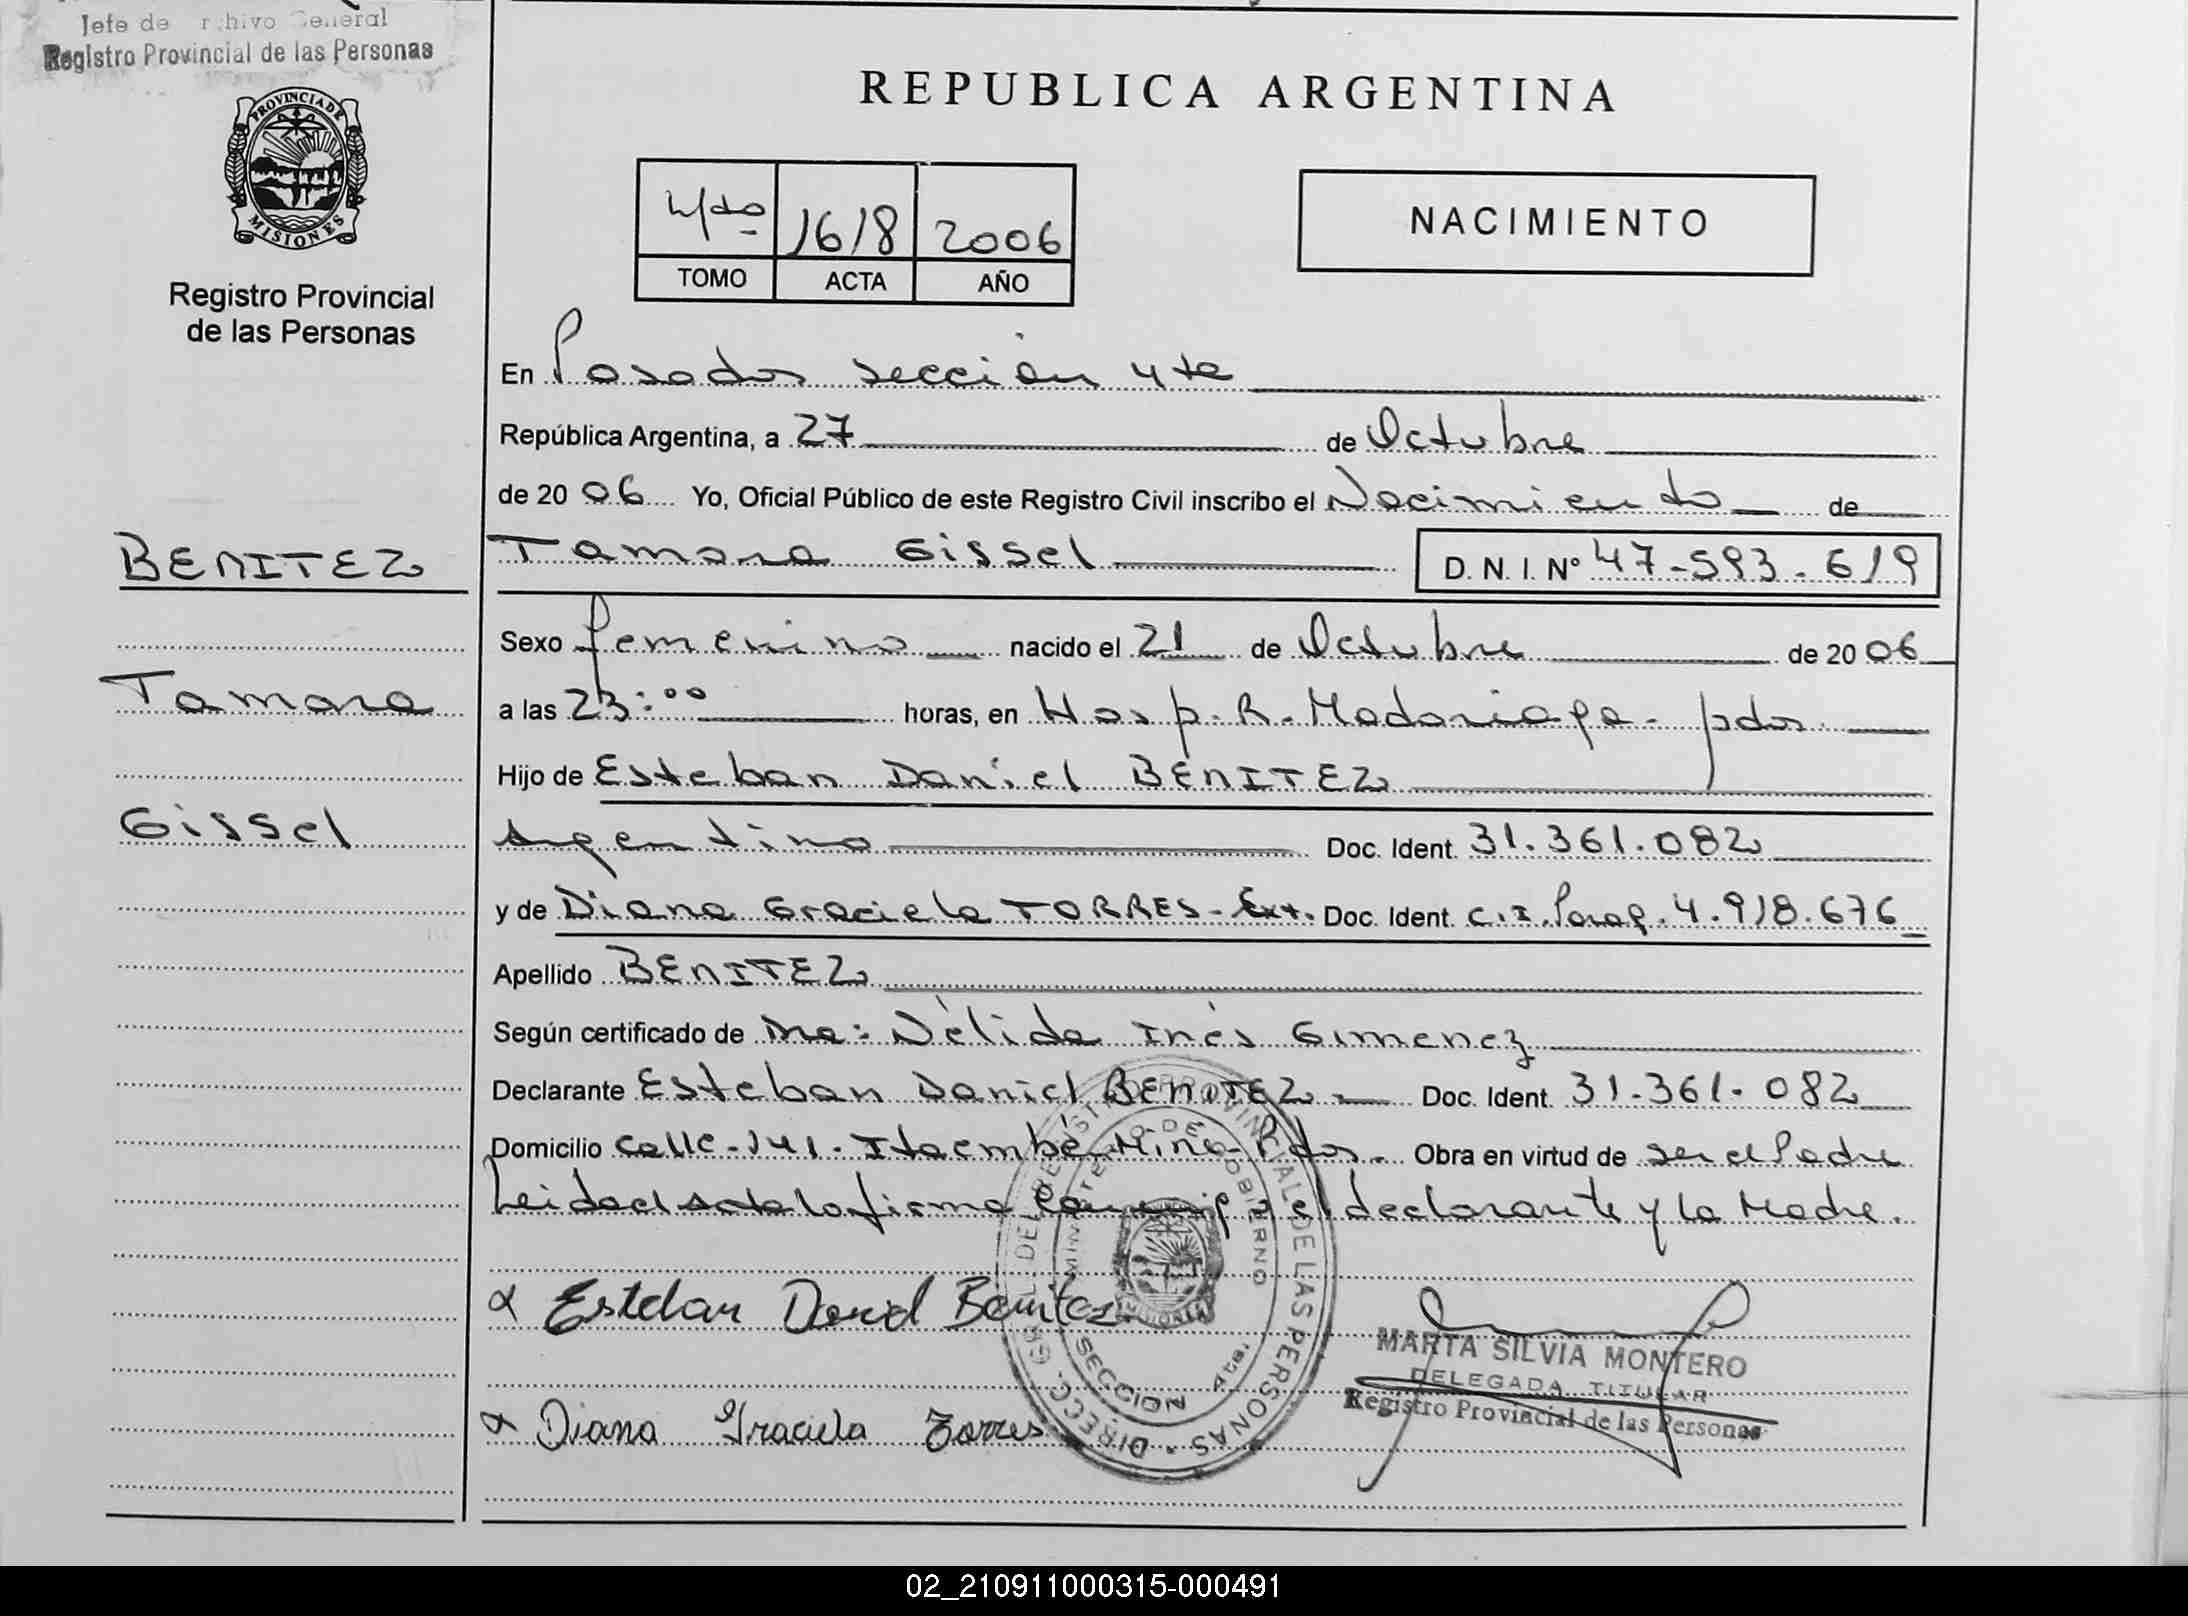 Jefe de Archivo General
Registro Provincial de las Personas
PROVINCIA DE
MISIONES
Registro Provincial
de las Personas
REPUBLICA ARGENTINA
4to 1618 2006
TOMO ACTA AÑO
NACIMIENTO
En Posadas sección 4ta
República Argentina, a 27 de Octubre
de 2006 Yo, Oficial Público de este Registro Civil inscribo el Nacimiento de
BENITEZ
Tamara Gissel D. N. I. Nº 47-593-619
Sexo femenino nacido el 21 de Octubre de 2006
Tamara
a las 23:00 horas, en Hosp. R. Madariaga - pdas.
Hijo de Esteban Daniel BENITEZ
Gissel
Argentino Doc. Ident. 31.361.082
y de Diana Graciela TORRES - Ext. Doc. Ident. C.I. Parag. 4.918.676
Apellido BENITEZ
Según certificado de Nélida Inés Gimenez
Declarante Esteban Daniel BENITEZ Doc. Ident. 31-361-082
Domicilio Calle-141-Itaembé Mini-Pdas- Obra en virtud de ser el Padre
Leida el acta la firma el declarante y la Madre.
Esteban Daniel Benitez
MARTA SILVIA MONTERO
DELEGADA TITULAR
Registro Provincial de las Personas
Diana Graciela Torres
DIRECC. GRAL. DEL REGISTRO PROVINCIAL DE LAS PERSONAS
MINISTERIO DE GOBIERNO
SECCION 4ta.
02_210911000315-000491